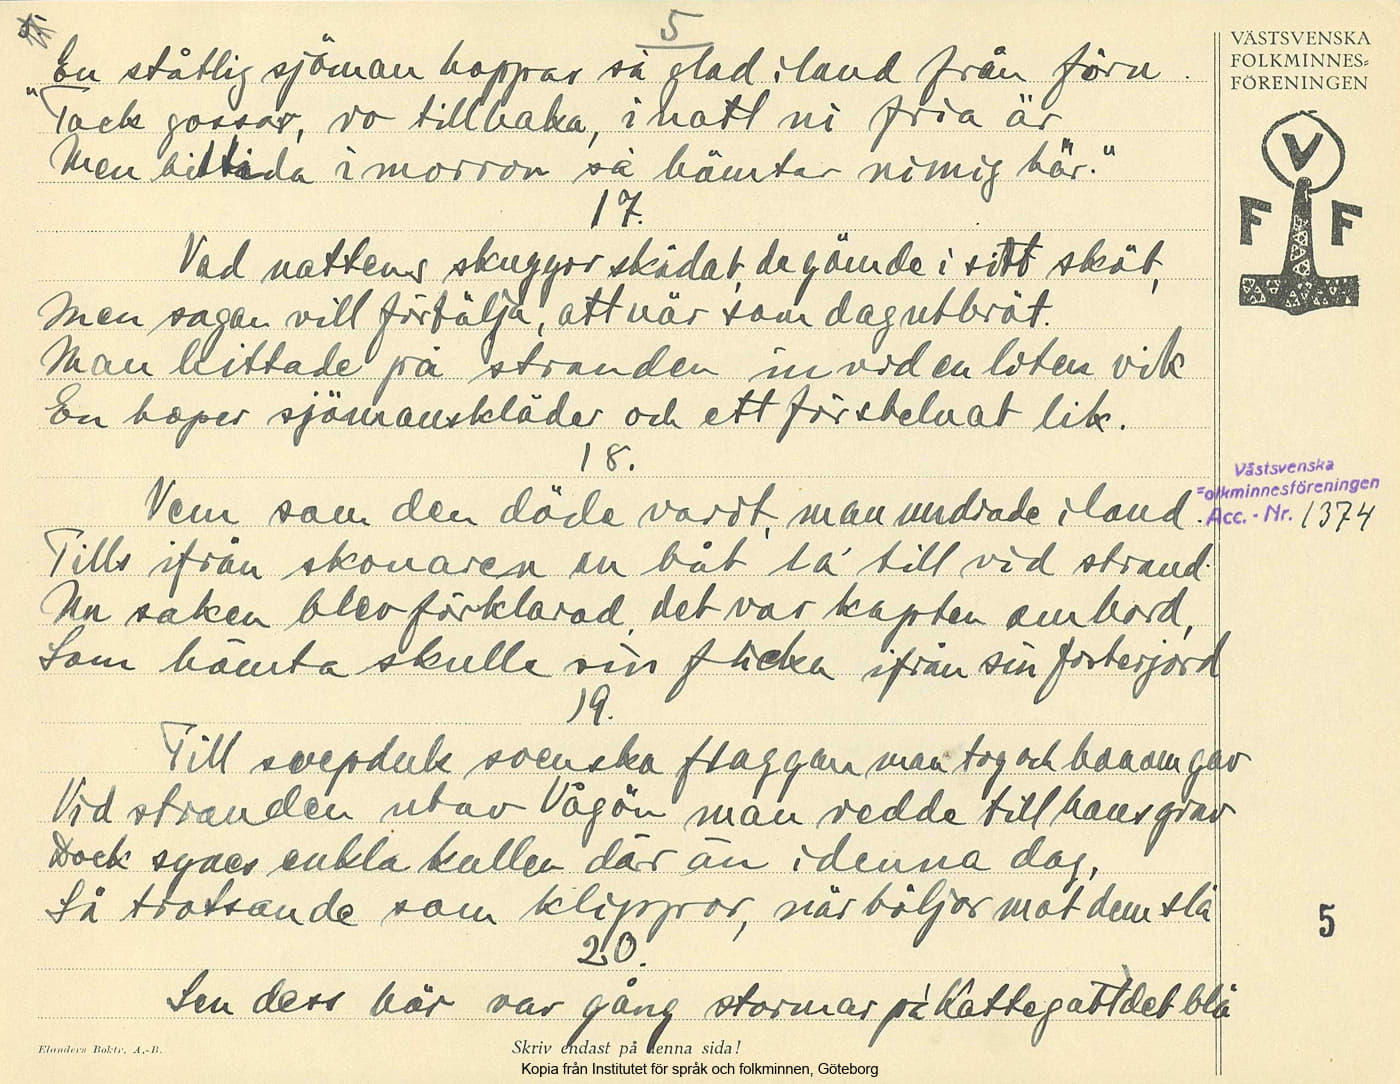 5
En ståtlig sjöman hoppar så glad i land från förn.
"Tack gossar, ro tillbaka, i natt ni fria är
Men bittida i morron så hämtar ni mig här."
17.
Vad nattens skuggor skådat, de gömde i sitt sköt,
Men sagan vill förtälja, att när som dag utbröt.
Man hittade på stranden in vid en liten vik
En hoper sjömanskläder och ett förstelnat lik.
18.
Vem som den döde varit, man undrade i land.
Tills ifrån skonaren en båt la' till vid strand.
Nu saken blev förklarad, det var kapten ombord,
Som hämta skulle sin flicka ifrån sin fosterjord
19.
Till svepduk svenska flaggan man tog och honom gav
Vid stranden utav Vågön man redde till hans grav
Dock synes enkla kullen där än i denna dag,
Så trotsande som klippor, när böljor mot dem slå
20.
Sen dess här var gång stormar på Kattegatt det blå
VÄSTSVENSKA
FOLKMINNES=
FÖRENINGEN
V
F F
Västsvenska
Folkminnesföreningen
Acc.-Nr. 1374
5
Elanders Boktr. A.-B.
Skriv endast på denna sida!
Kopia från Institutet för språk och folkminnen, Göteborg